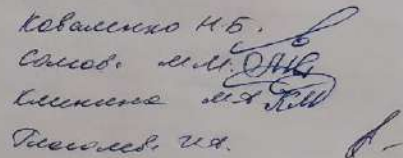 Коваленко Н.Б.
Сомов. М.М.
Клинина М.А.
Глаголев. И.А.